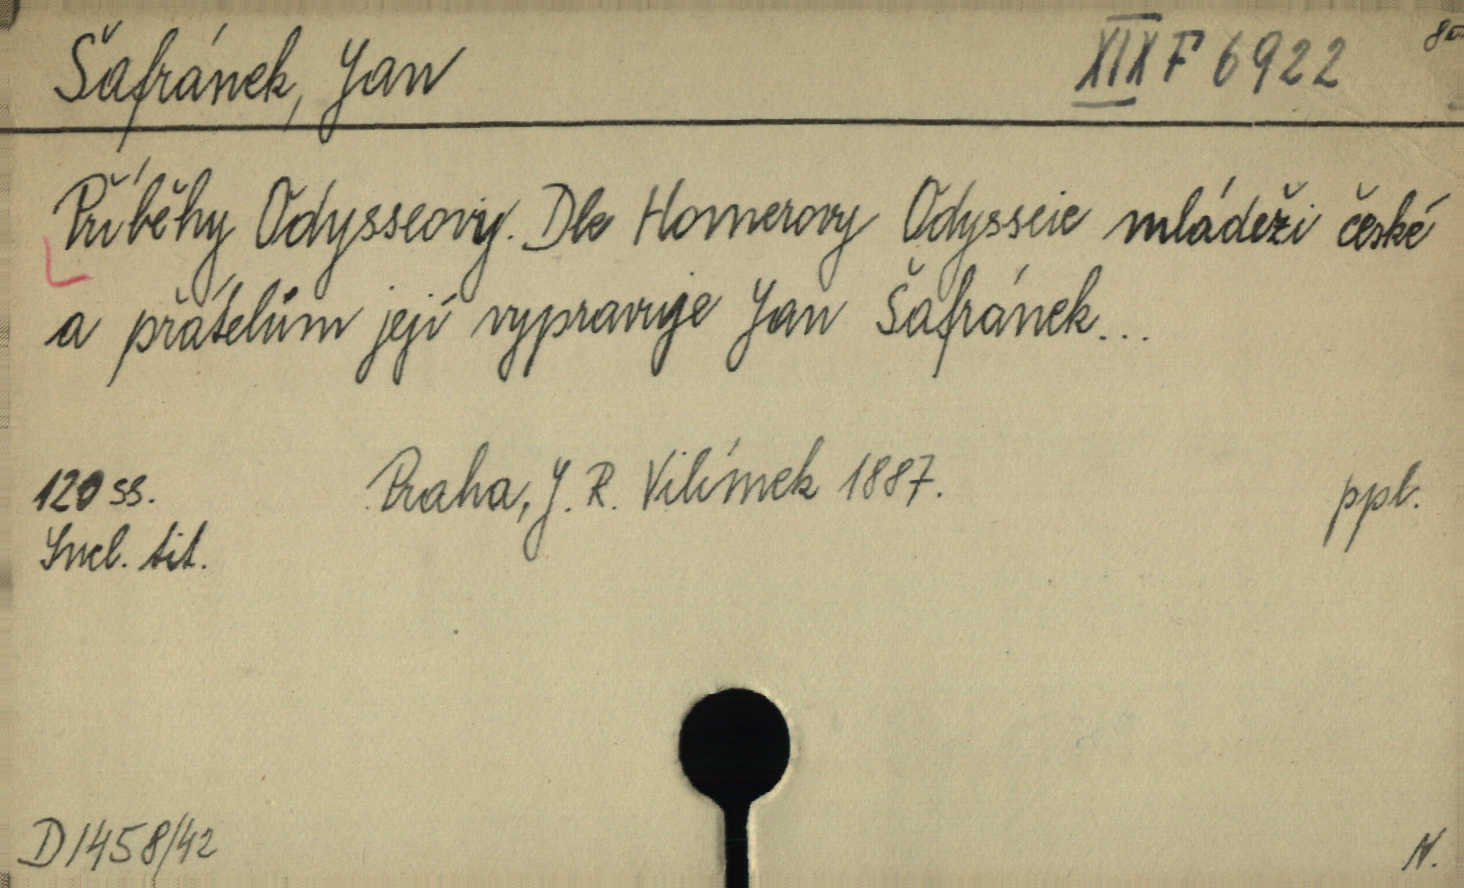 Šafránek, Jan
XIX F 6922
Příběhy Odysseovy. Dle Homerovy Odysseie mládeži české
a přátelům její vypravuje Jan Šafránek...
120 ss.
Praha, J. R. Vilímek 1887.
ppl.
Incl. tit.
D 1458/42
N.